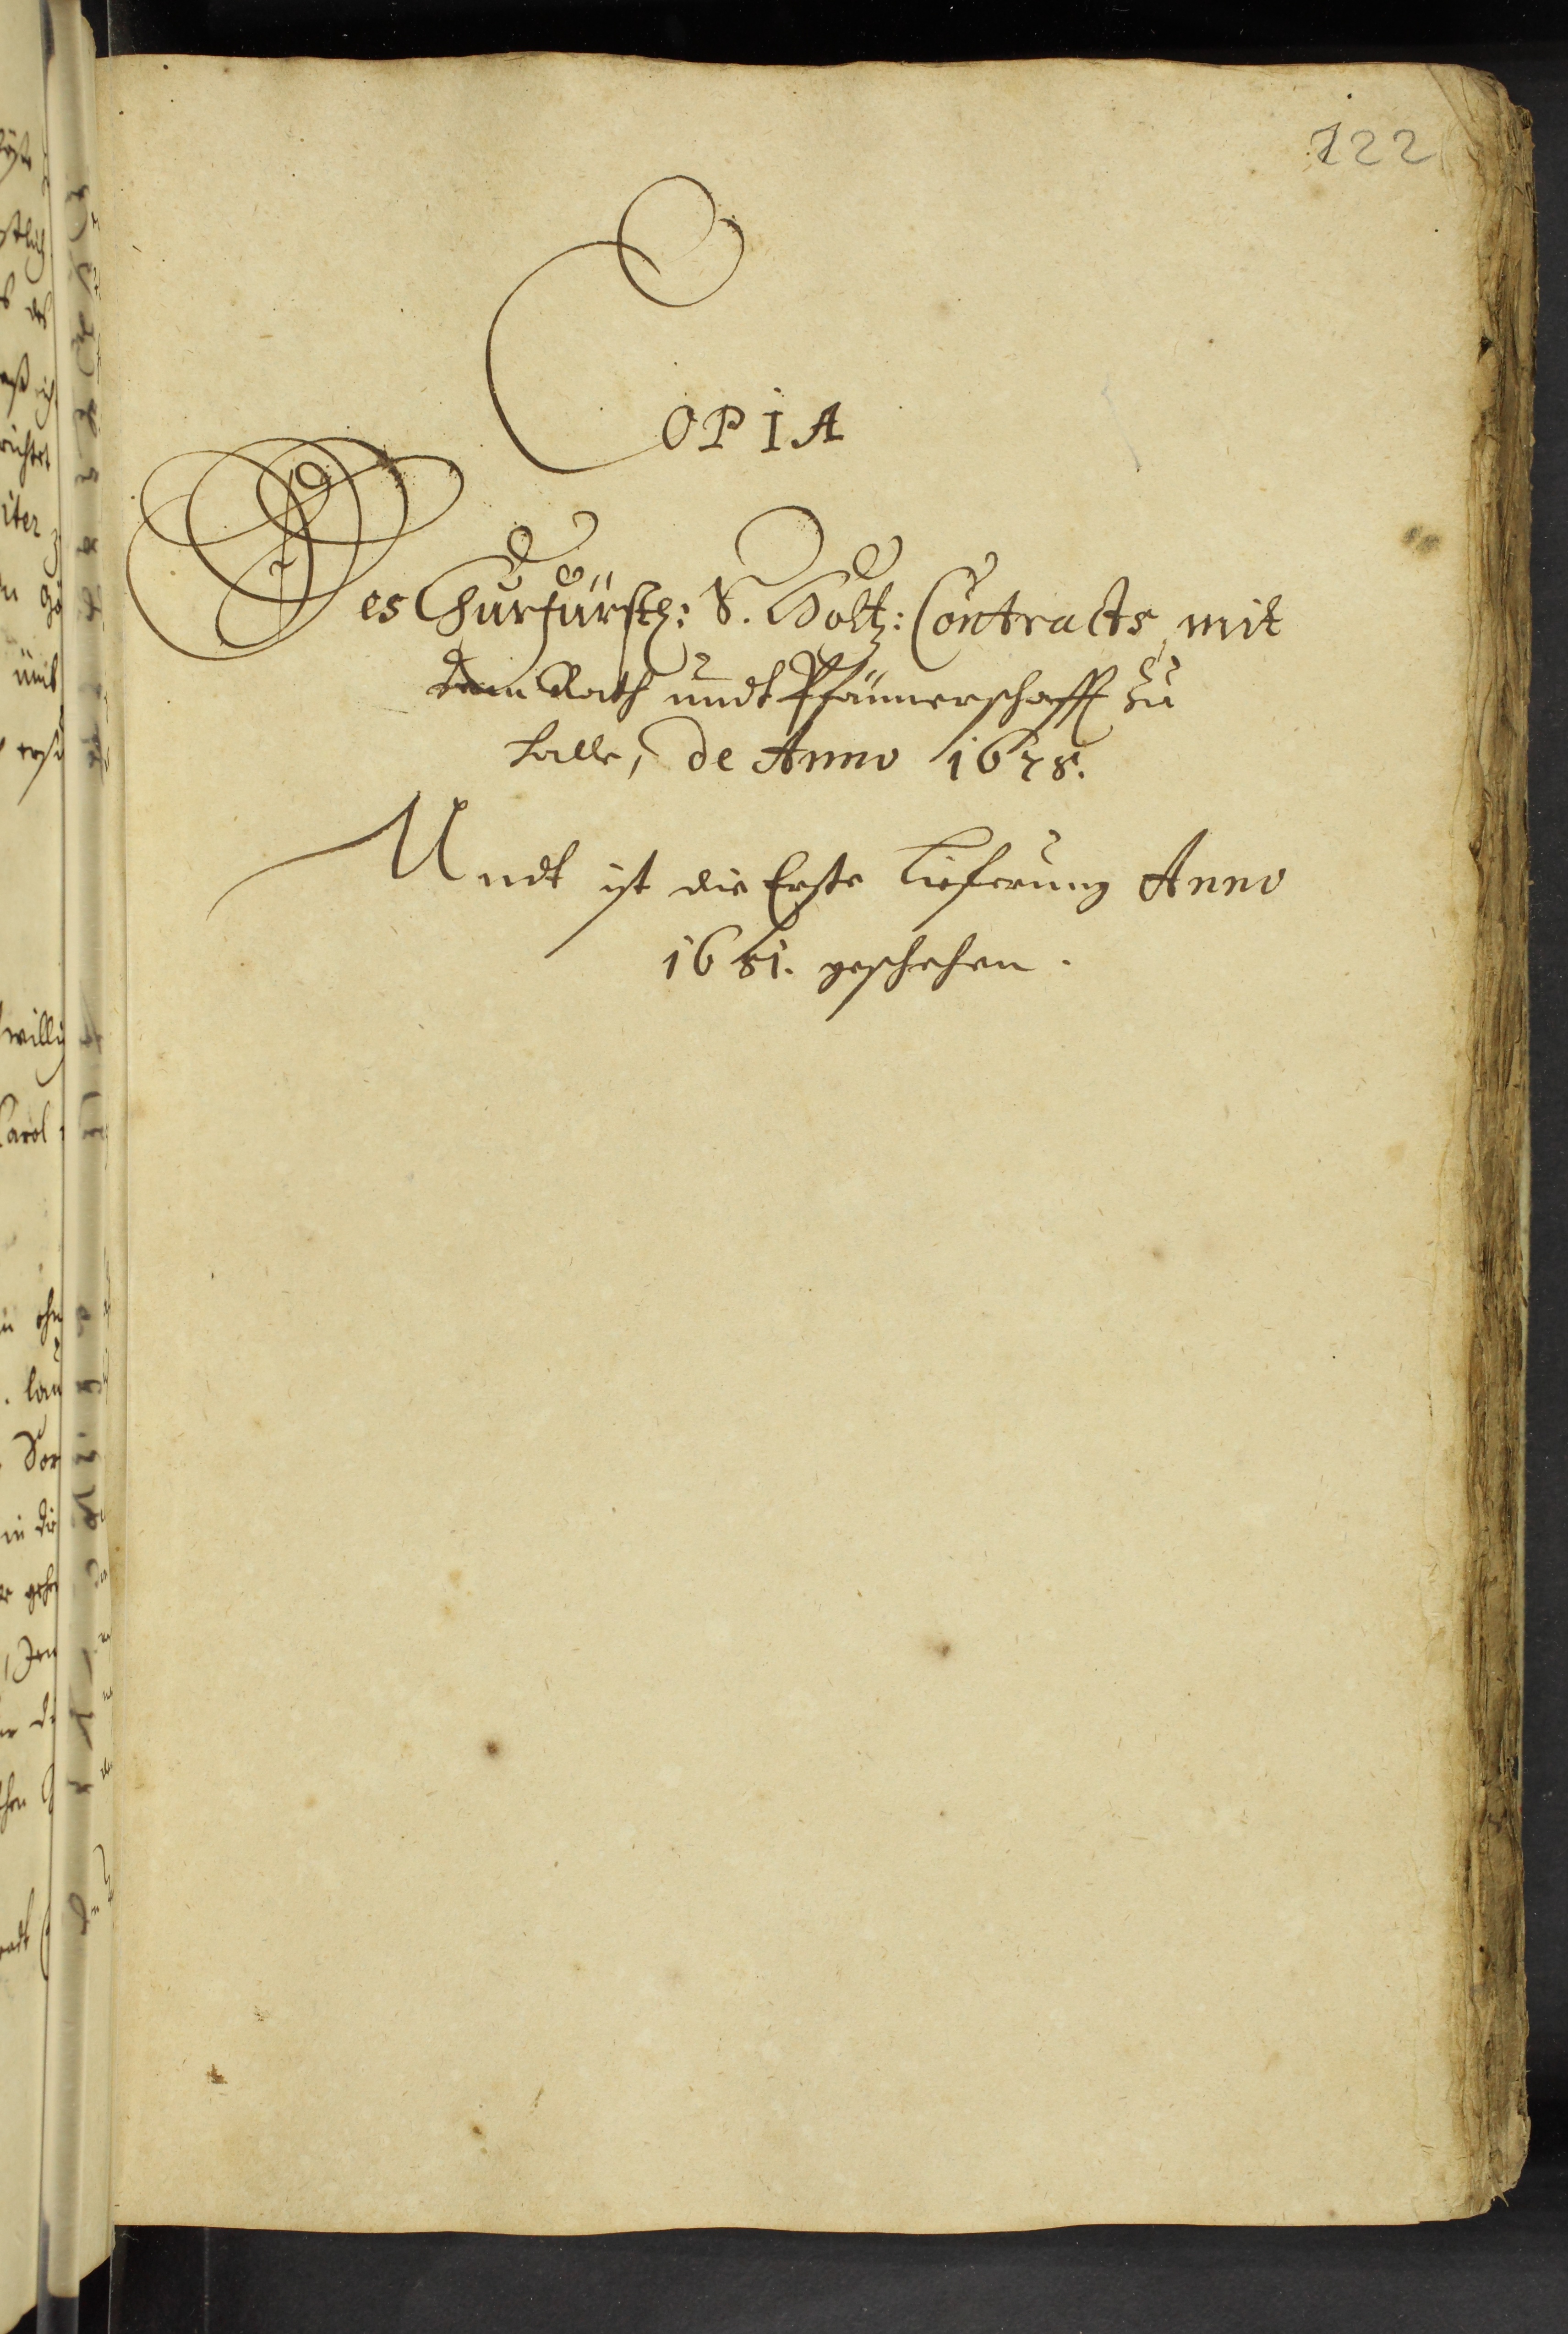 122
COPIA
Des Churfürstl: S. Holtz: Contracts, mit
dem Rath undt Pfännerschafft zu
Halle, de Anno 1678.
Undt ist die Erste Lieferung Anno
1681. geschehen.